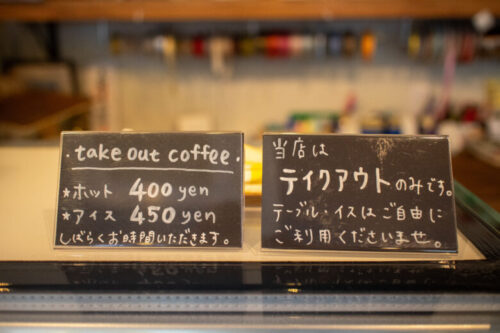 ・take out coffee・
★ホット 400 yen
★アイス 450 yen
しばらくお時間いただきます。
当店は
テイクアウトのみです。
テーブル、イスはご自由に
ご利用くださいませ。